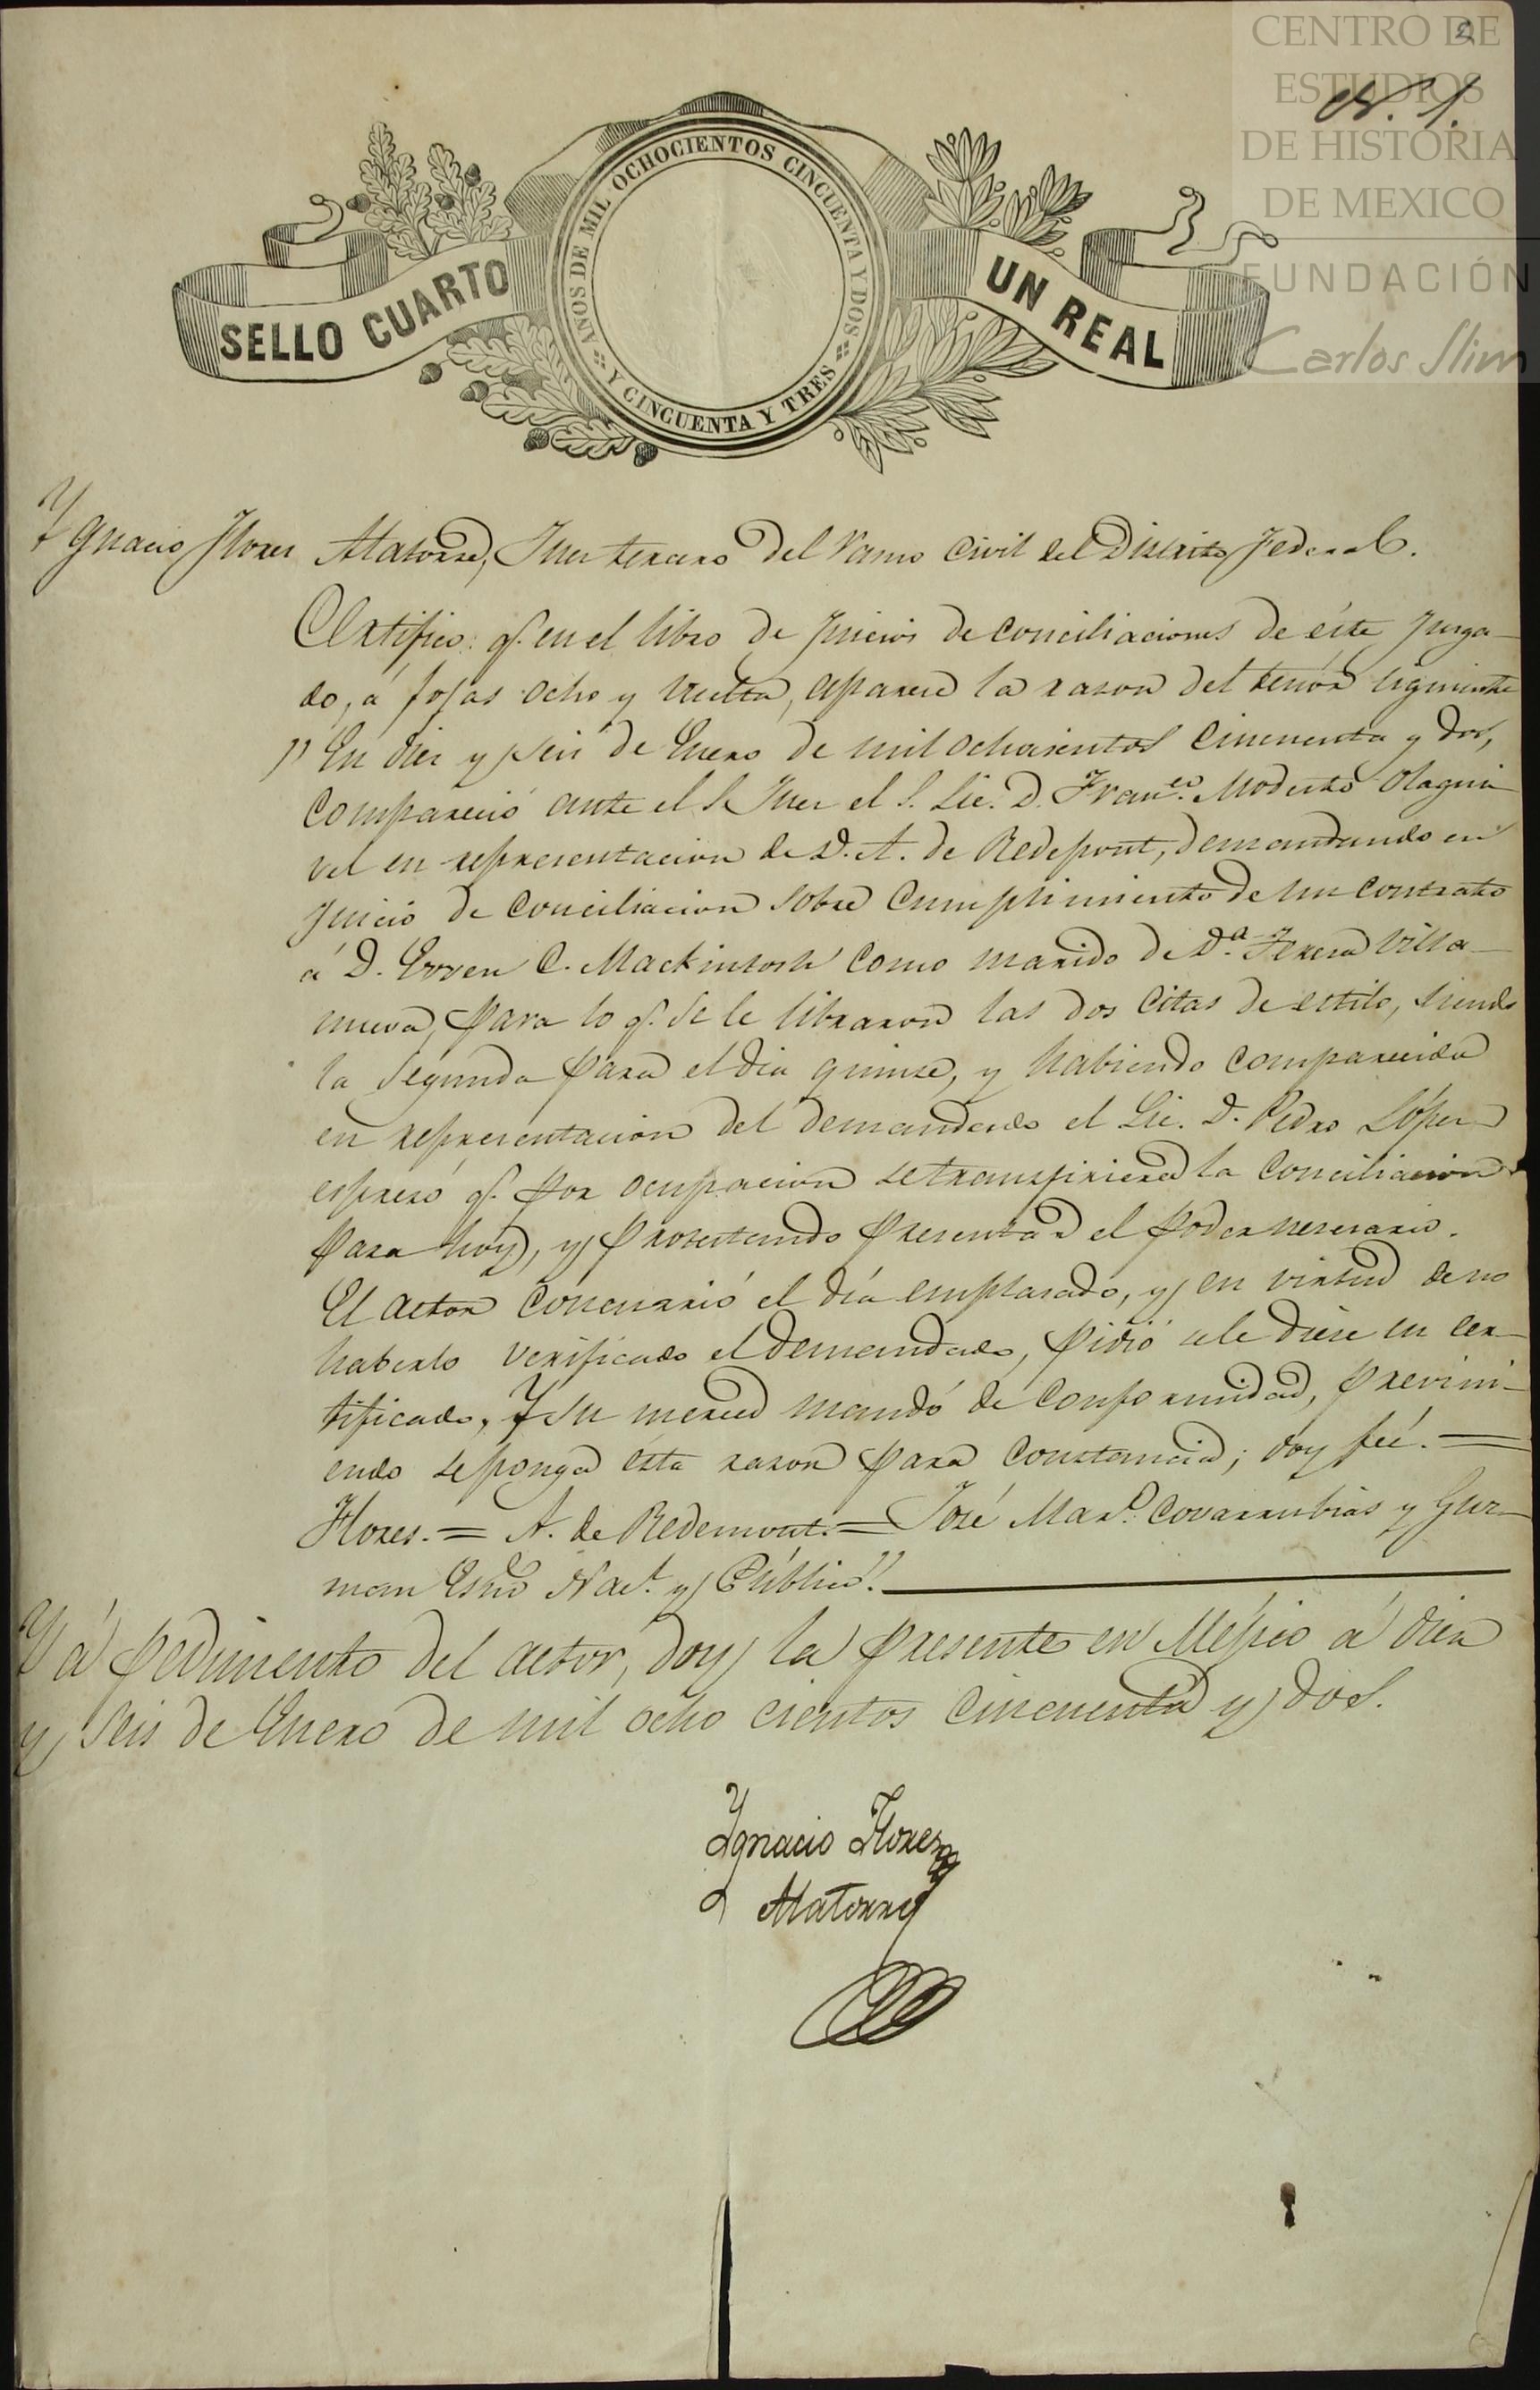 CENTRO DE
ESTUDIOS
DE HISTORIA
DE MEXICO
FUNDACIÓN
Carlos Slim
2
N. 1.
SELLO CUARTO
AÑOS DE MIL OCHOCIENTOS CINCUENTA Y DOS
Y CINCUENTA Y TRES
UN REAL
Ygnacio Flores Alatorre, Juez tercero del ramo Civil del Distrito Federal.
Certifico: q. en el libro de Juicios de conciliaciones de éste Juzga-
do, a fojas ocho y vuelta, aparece la razon del tenór siguiente
" En diez y seis de Enero de mil ochocientos cincuenta y dos,
compareció ante el S. Juez el S. Lic. D. Fran.co Modesto Olagui
vel en representacion de D. A. de Redepont, demandando en
juicio de conciliacion sobre cumplimiento de un contrato
á D. Evven C. Mackintosh como marido de D.a Teresa Villa-
nueva, para lo q. se le libraron las dos citas de estilo, siendo
la segunda para el dia quinze, y habiendo comparecido
en representacion del demandado el Lic. D. Pedro López
espresó q. por ocupacion se transfiriera la conciliacion
para hoy, y protestando presentar el poder nesesario.
El actor concurrió el día emplasado, y en virtud de no
haberlo verificado el demandado, pidió se le diese un cer-
tificado, Y su merced mandó de conformidad, previni-
endo se ponga ésta razon para constancia; doy feé. =
Flores. = A. de Redemont. = José Mar.a Covarrubias y Guz-
man Esno Nac.l y Públicó".
Y á pedimento del actor, doy la presente en Méjico á diez
y seis de Enero de mil ocho cientos cincuenta y dos.
Ygnacio Flores
Alatorre